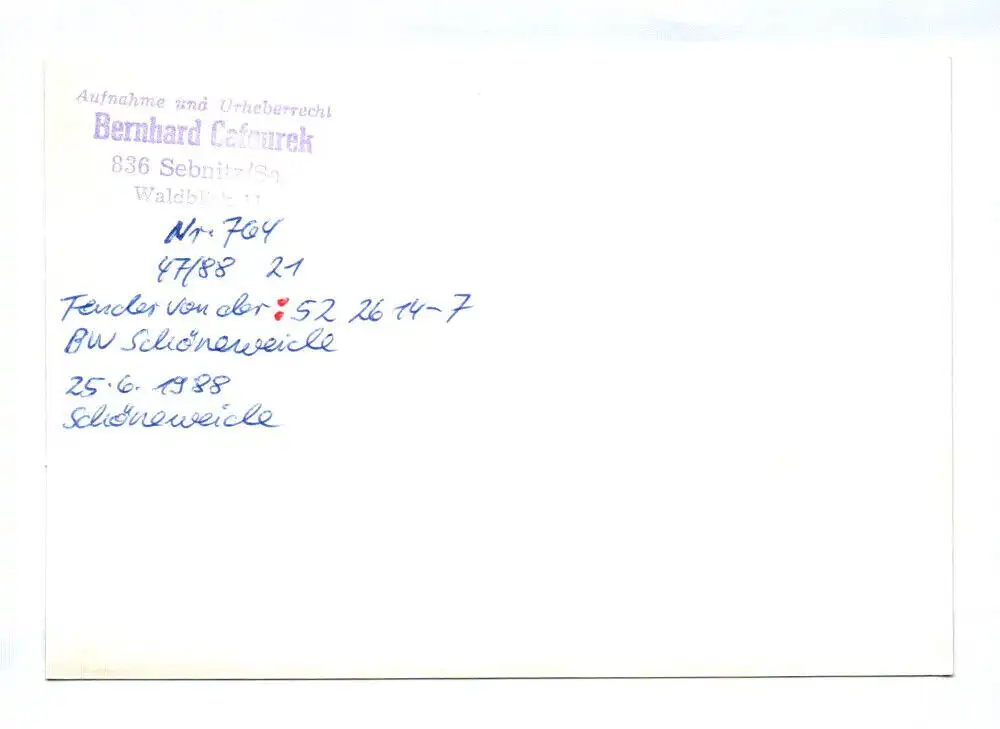 Aufnahme und Urheberrecht
Bernhard Cafourek
836 Sebnitz/Sa.
Nr. 764
47/88 21
Tender von der: 52 2614-7
BW Schöneweide
25.6.1988
Schöneweide